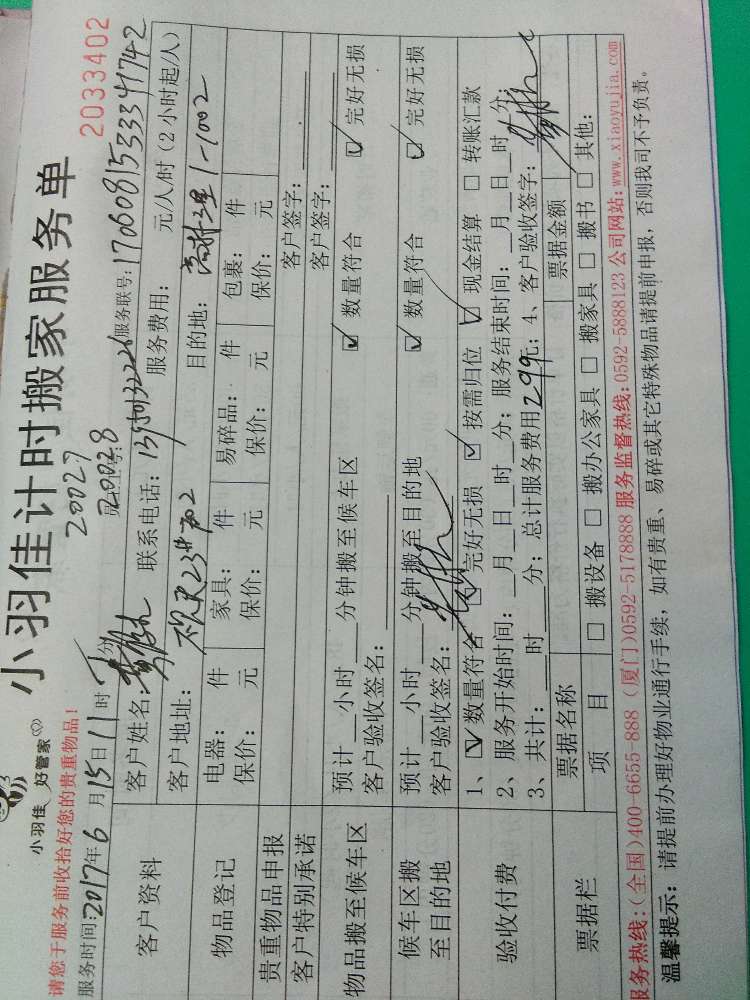 小羽佳 好管家
小羽佳计时搬家服务单
2033402
请您于服务前收拾好您的贵重物品!
20027
20028
服务时间:2017年6月15日11时 分
客户资料
客户姓名: 联系电话: 服务联号:
客户地址: 服务费用: 元/人/时 (2小时起/人)
目的地: 1-1002
物品登记
电器: 件 家具: 件 易碎品: 件 包裹: 件
保价: 元 保价: 元 保价: 元 保价: 元
贵重物品申报 客户签字:
客户特别承诺 客户签字:
物品搬至候车区
预计 小时 分钟搬至候车区 ☑ 数量符合 ☑ 完好无损
客户验收签名:
候车区搬至目的地
预计 小时 分钟搬至目的地 ☑ 数量符合 ☑ 完好无损
客户验收签名:
验收付费
1、☑ 数量符合 ☑ 完好无损 ☑ 按需归位 ☑ 现金结算 □ 转账汇款
2、服务开始时间: 月 日 时 分; 服务结束时间: 月 日 时 分;
3、共计: 时 分; 总计服务费用299元; 4、客户验收签字:
票据栏
票据名称 票据金额
项目 □ 搬设备 □ 搬办公家具 □ 搬家具 □ 搬书 □ 其他:
服务热线:(全国)400-6655-888 (厦门)0592-5178888 服务监督热线:0592-5888123 公司网站:www.xiaoyujia.com
温馨提示: 请提前办理好物业通行手续, 如有贵重、易碎或其它特殊物品请提前申报, 否则我司不予负责。